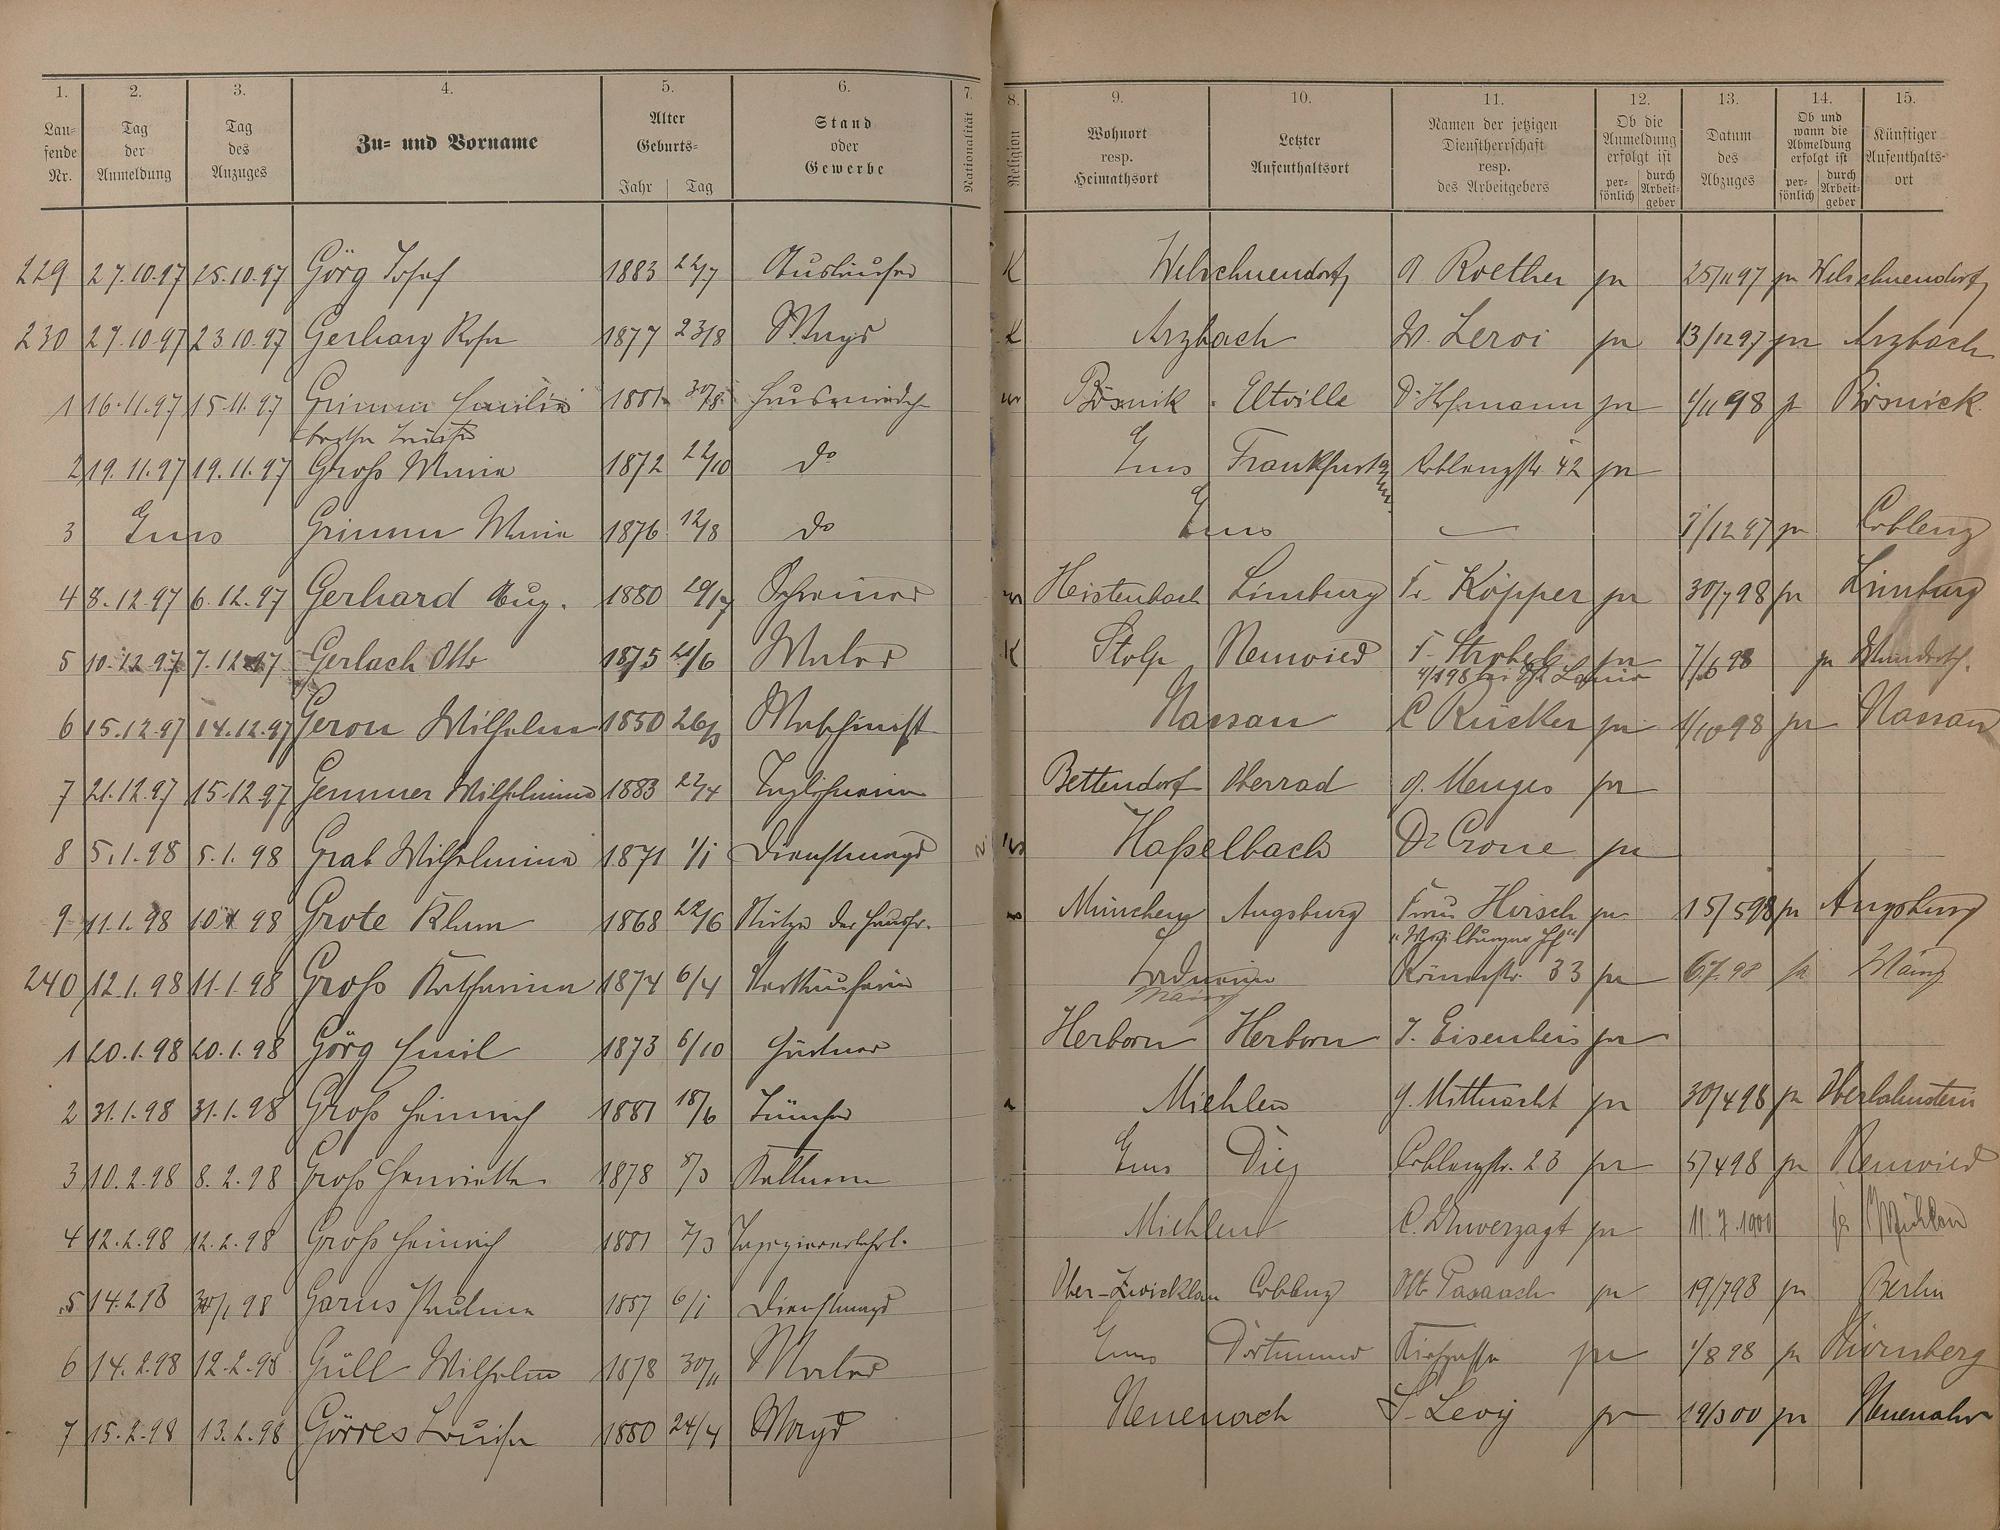 1. 2. 3. 4. 5. 6. 7. 8. 9. 10. 11. 12. 13. 14. 15.
Lau-
fende
Nr.
Tag
der
Anmeldung
Tag
des
Anzuges
Zu- und Vorname
Alter
Geburts-
Jahr Tag
Stand
oder
Gewerbe
Nationalität
Religion
Wohnort
resp.
Heimathsort
Letzter
Aufenthaltsort
Namen der jetzigen
Dienstherrschaft
resp.
des Arbeitgebers
Ob die
Anmeldung
erfolgt ist
per-
sönlich
durch
Arbeit-
geber
Datum
des
Abzuges
Ob und
wann die
Abmeldung
erfolgt ist
per-
sönlich
durch
Arbeit-
geber
Künftiger
Aufenthalts-
ort
229 27.10.97 25.10.97 Görg Josef 1883 22/7 Ausläufer K Welschneudorf Roether 25/11 97 Welschneudorf
230 27.10.97 23.10.97 Gerharz Rosa 1877 23/8 Magd K Arzbach W. Leroi 13/12 97 Arzbach
1 16.11.97 15.11.97 Grimm Emilie 1881 30/8 Eltville Dr Hofmann 1/11 98
2 19.11.97 19.11.97 Groß Maria 1872 22/10 do Ems Frankfurt Coblenzstr. 42
3 Ems Grimm Maria 1876 12/8 do Ems — 7/12 97 Coblenz
4 8.12.97 6.12.97 Gerhard Aug. 1880 29/7 Schreiner Heistenbach Limburg Fr. Köpper 30/7 98 Limburg
5 10.12.97 7.12.97 Gerlach Otto 1875 21/6 Maler K Stolp Neuwied F. Strobel 7/6 98
6 15.12.97 14.12.97 Geron Wilhelm 1850 26/3 Maschinist Nassau C Rücker 1/10 98 Nassau
7 21.12.97 15.12.97 Gemmer Wilhelmine 1883 22/4 Bettendorf Oberrad Menges
8 5.1.98 5.1.98 Grab Wilhelmine 1871 1/1 Dienstmagd Haßelbach Dr Crone
9 11.1.98 10.1.98 Grote Klara 1868 22/6 Stütze der Hausfr. München Augsburg Frau Hirsch 15/5 98 Augsburg
"Weilburger Hf"
240 12.1.98 11.1.98 Groß Katharina 1874 6/4 Verkäuferin Römerstr. 33 6.7.98 Mainz
Mainz
1 20.1.98 20.1.98 Görg Emil 1873 6/10 Herborn Herborn J. Eisenbeis
2 31.1.98 31.1.98 Groß Heinrich 1881 18/6 Tüncher Miehlen Mittnacht 30/4 98 Oberlahnstein
3 10.2.98 8.2.98 Groß Henriette 1878 8/3 Kellnerin Ems Diez Coblenzstr. 23 5/4 98 Neuwied
4 12.2.98 12.2.98 Groß Heinrich 1881 7/3 Tapeziererlehrl. Miehlen C. Unverzagt 11.7.1900 Miehlen
5 14.2.98 98 Garus Paulina 6/1 Dienstmagd Coblenz 19/7 98 Berlin
6 14.2.98 12.2.98 Güll Wilhelm 1878 30/11 Maler Ems Dortmund 1/8 98 Nürnberg
7 15.2.98 13.2.98 Görres Louise 1880 24/4 Magd Levy 19/3 00 Neuenahr